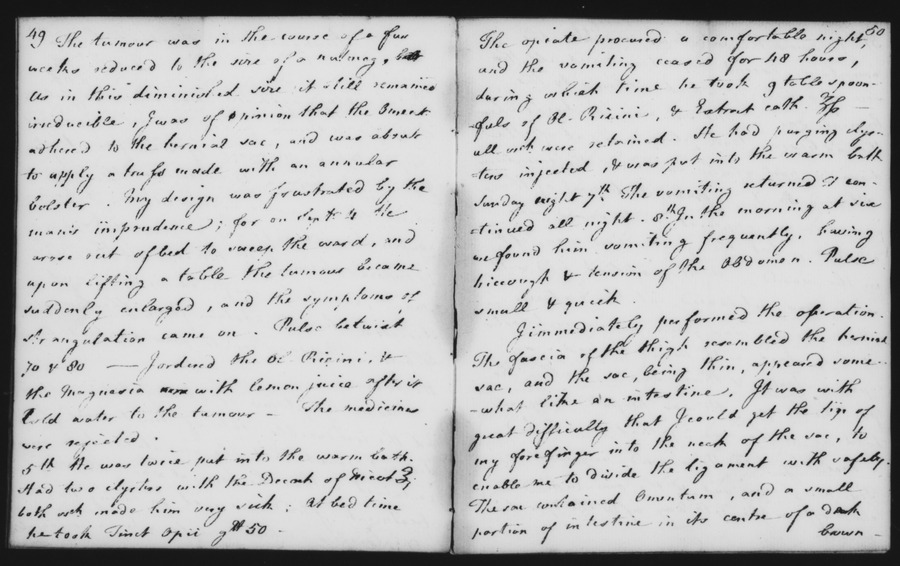 49
The tumour was in the course of a few
weeks reduced to the size of a nutmeg, but
as in this diminished size it still remained
irreducible I was of opinion that the Oment
adhered to the hernial sac, and was about
to apply a truss made with an annular
bolster. My design was frustrated by the
man's imprudence; for on Sept 4 He
arose out of bed to sweep the ward, and
upon lifting a table the tumour became
suddenly enlarged, and the symptoms of
strangulation came on. Pulse betwixt
70 & 80 — I ordered the Ol Ricini, &
the Magnesia with lemon juice after it
Cold water to the tumour – The medicines
were rejected.
5th He was twice put into the warm bath.
Had two clysters with the Decoct of Nicot
both wch made him very sick: At bed time
he took Tinct Opii 50 –
50
The opiate procured a comfortable night,
and the vomiting ceased for 48 hours,
during which time he took 9 tablespoon-
fuls of Ol. Ricini, & Extract cath. —
all wch were retained. He had purging clys-
ters injected, & was put into the warm bath
Sunday night 7th The vomiting returned & con-
-tinued all night. 8th In the morning at six
we found him vomiting frequently, having
hiccough & tension of the Abdomen. Pulse
small & quick.
I immediately performed the operation.
The fascia of the thigh resembled the hernial
sac, and the sac, being thin, appeared some-
-what like an intestine. It was with
great difficulty that I could get the tip of
my forefinger into the neck of the sac, to
enable me to divide the ligament with safety.
The sac contained Omentum, and a small
portion of intestine in its centre of a dark
brown –